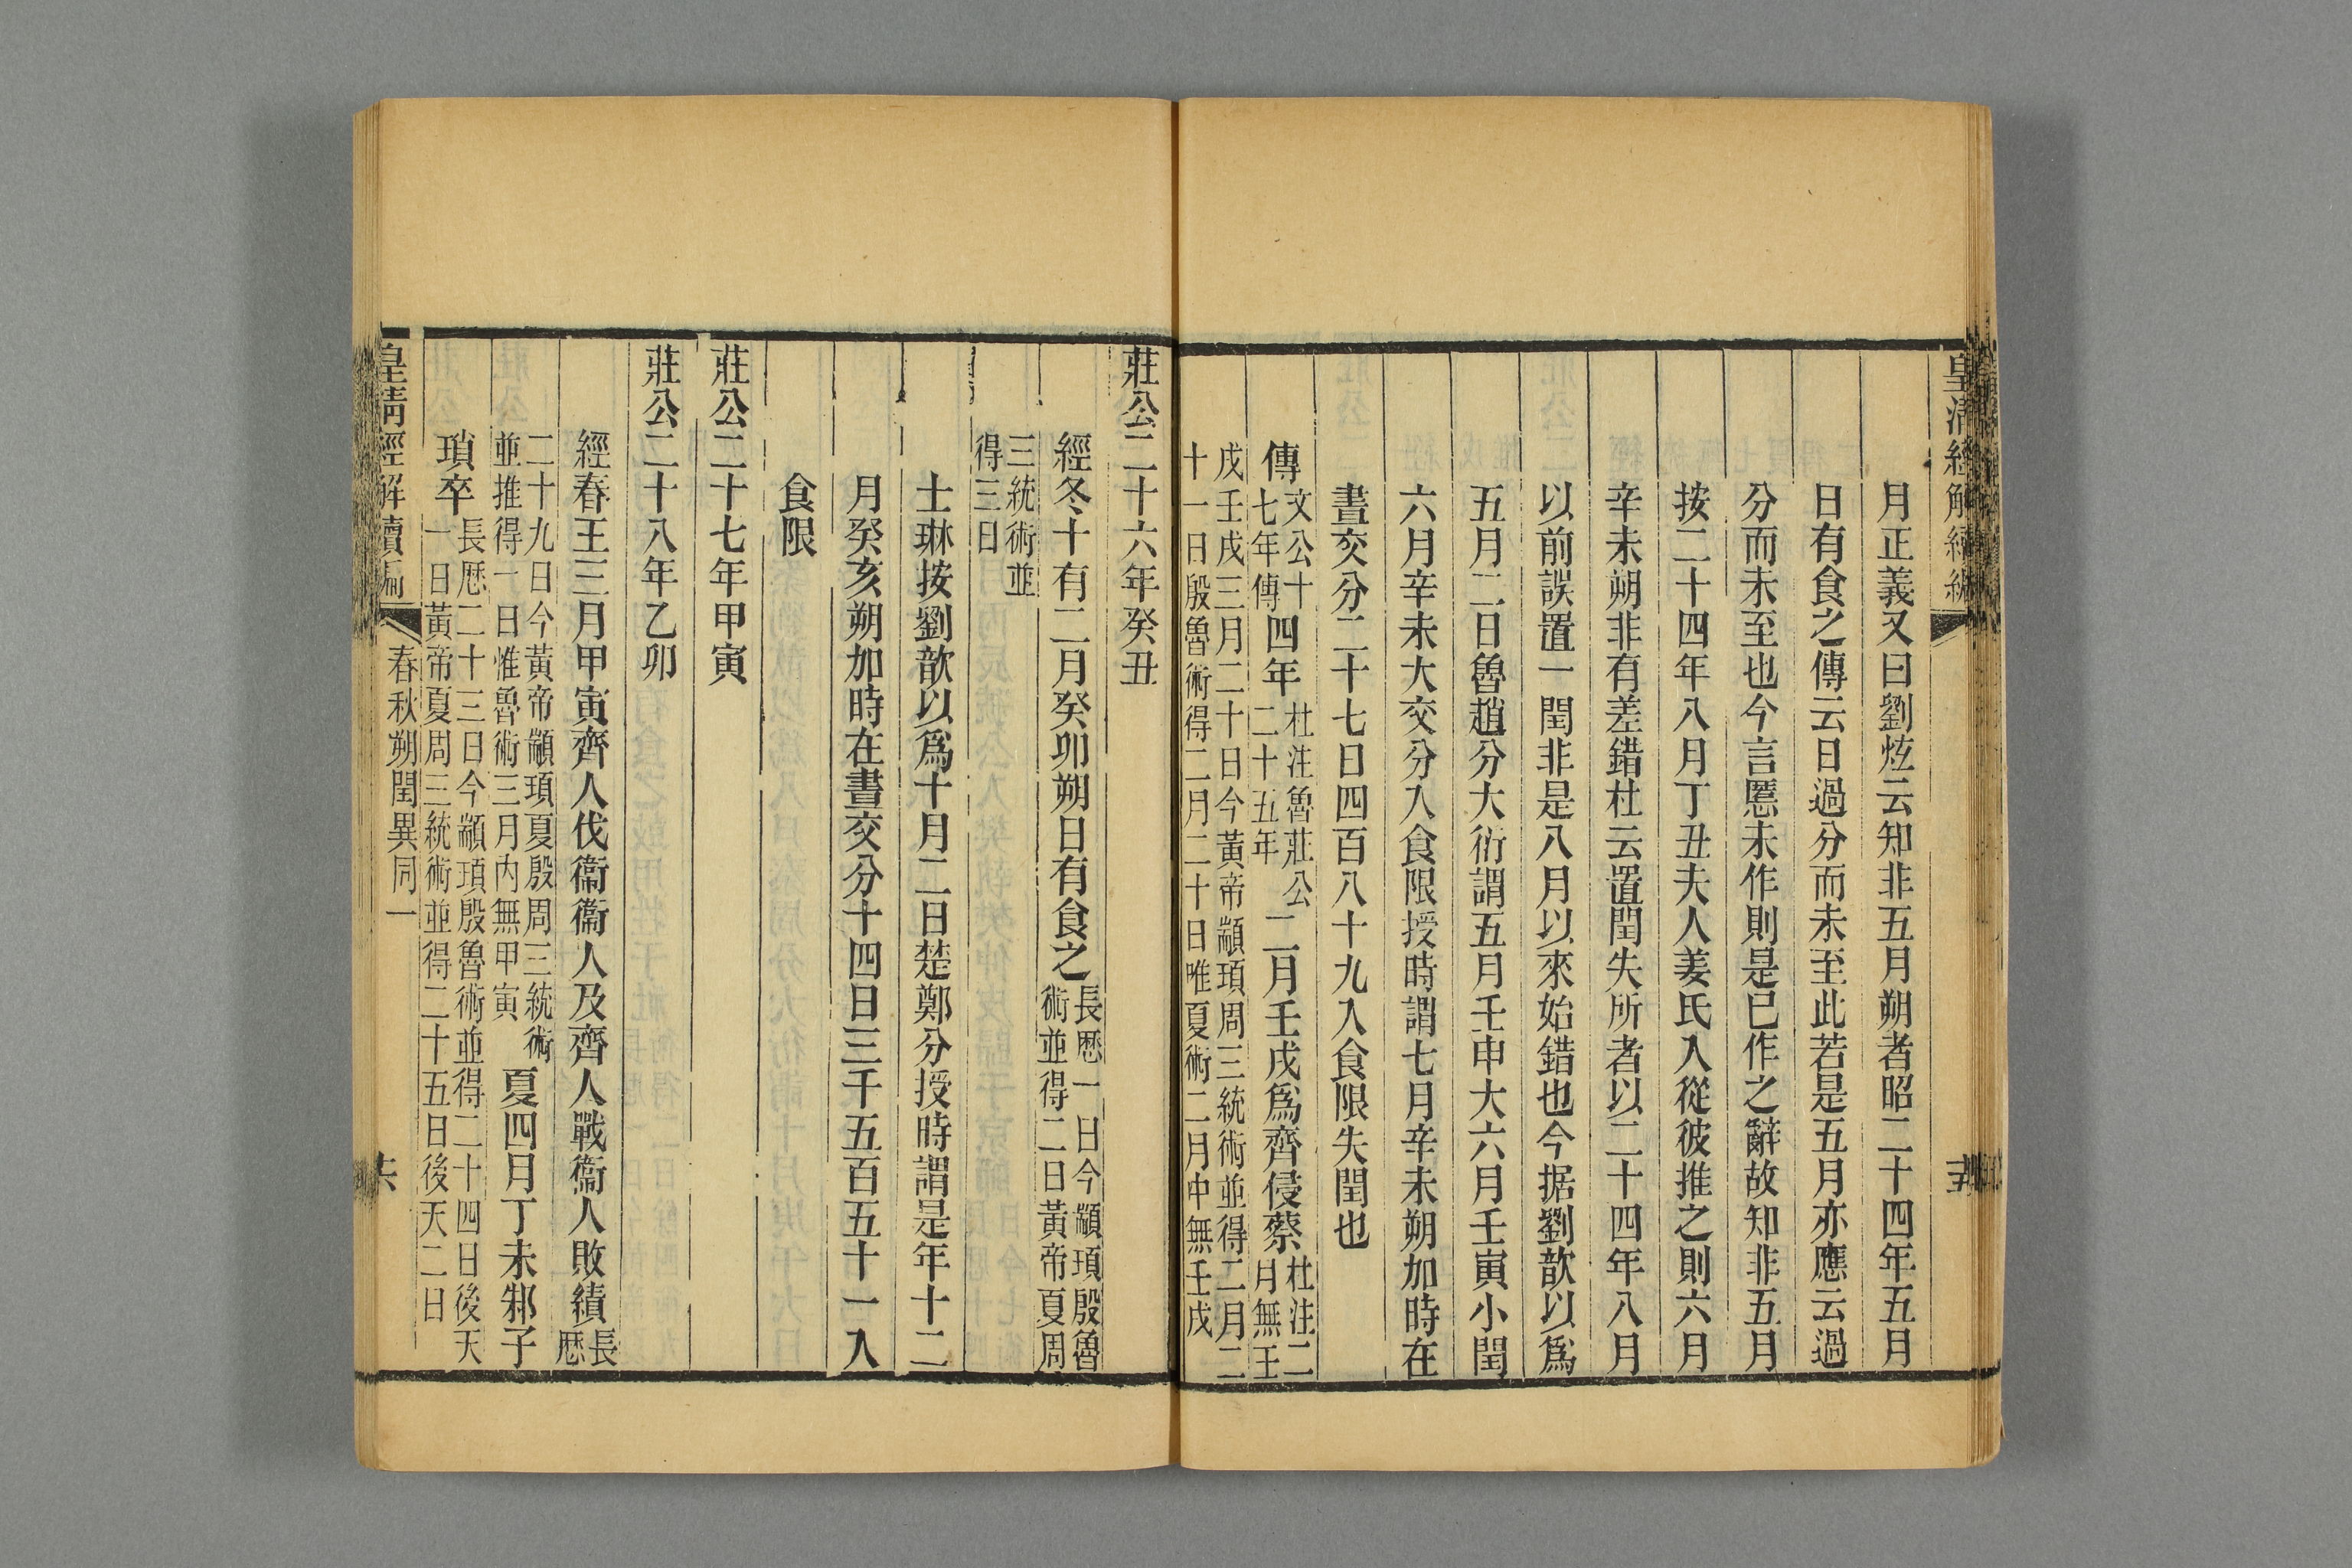 皇清經解續編
月正義又曰劉炫云知非五月朔者昭二十四年五月
日有食之傳云日過分而未至此若是五月亦應云過
分而未至也今言慝未作則是已作之辭故知非五月
按二十四年八月丁丑夫人姜氏入從彼推之則六月
辛未朔非有差錯杜云置閏失所者以二十四年八月
以前誤置一閏非是八月以來始錯也今据劉歆以爲
五月二日魯趙分大衍謂五月壬申大六月壬寅小閏
六月辛未大交分入食限授時謂七月辛未朔加時在
晝交分二十七日四百八十九入食限失閏也
傳文公十七年傳四年杜注魯莊公二十五年二月壬戌爲齊侵蔡杜注二月無壬
戌壬戌三月二十日今黃帝顓頊周三統術並得二月二
十一日殷魯術得二月二十日唯夏術二月中無壬戌
莊公二十六年癸丑
經冬十有二月癸卯朔日有食之長厯一日今顓頊殷魯術並得二日黃帝夏周
三統術並得三日
士琳按劉歆以爲十月二日楚鄭分授時謂是年十二
月癸亥朔加時在晝交分十四日三千五百五十一入
食限
莊公二十七年甲寅
莊公二十八年乙卯
經春王三月甲寅齊人伐衞衞人及齊人戰衞人敗績長厯
二十九日今黃帝顓頊夏殷周三統術並推得一日惟魯術三月內無甲寅夏四月丁未邾子
瑣卒長厯二十三日今顓頊殷魯術並得二十四日後天一日黃帝夏周三統術並得二十五日後天二日
皇清經解續編
春秋朔閏異同一